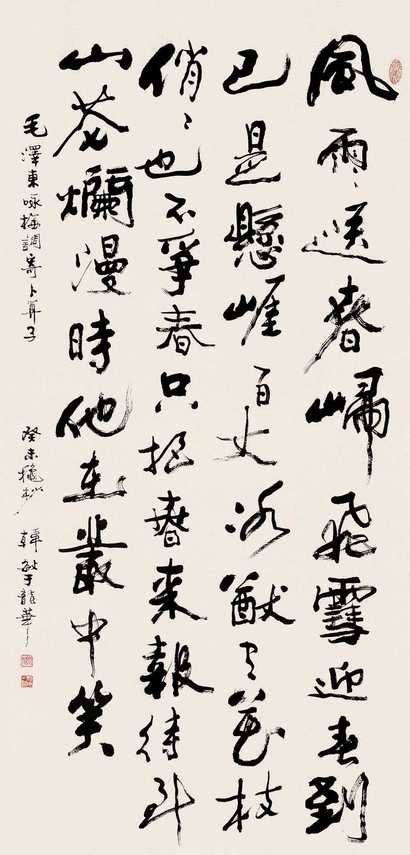 風雨送春歸飛雪迎春到
已是懸崖百丈冰猷有花枝
俏〻也不爭春只把春來報待到
山花爛漫時他在叢中笑
毛澤東詠梅調寄卜算子
癸未穐 韓敏于龍華